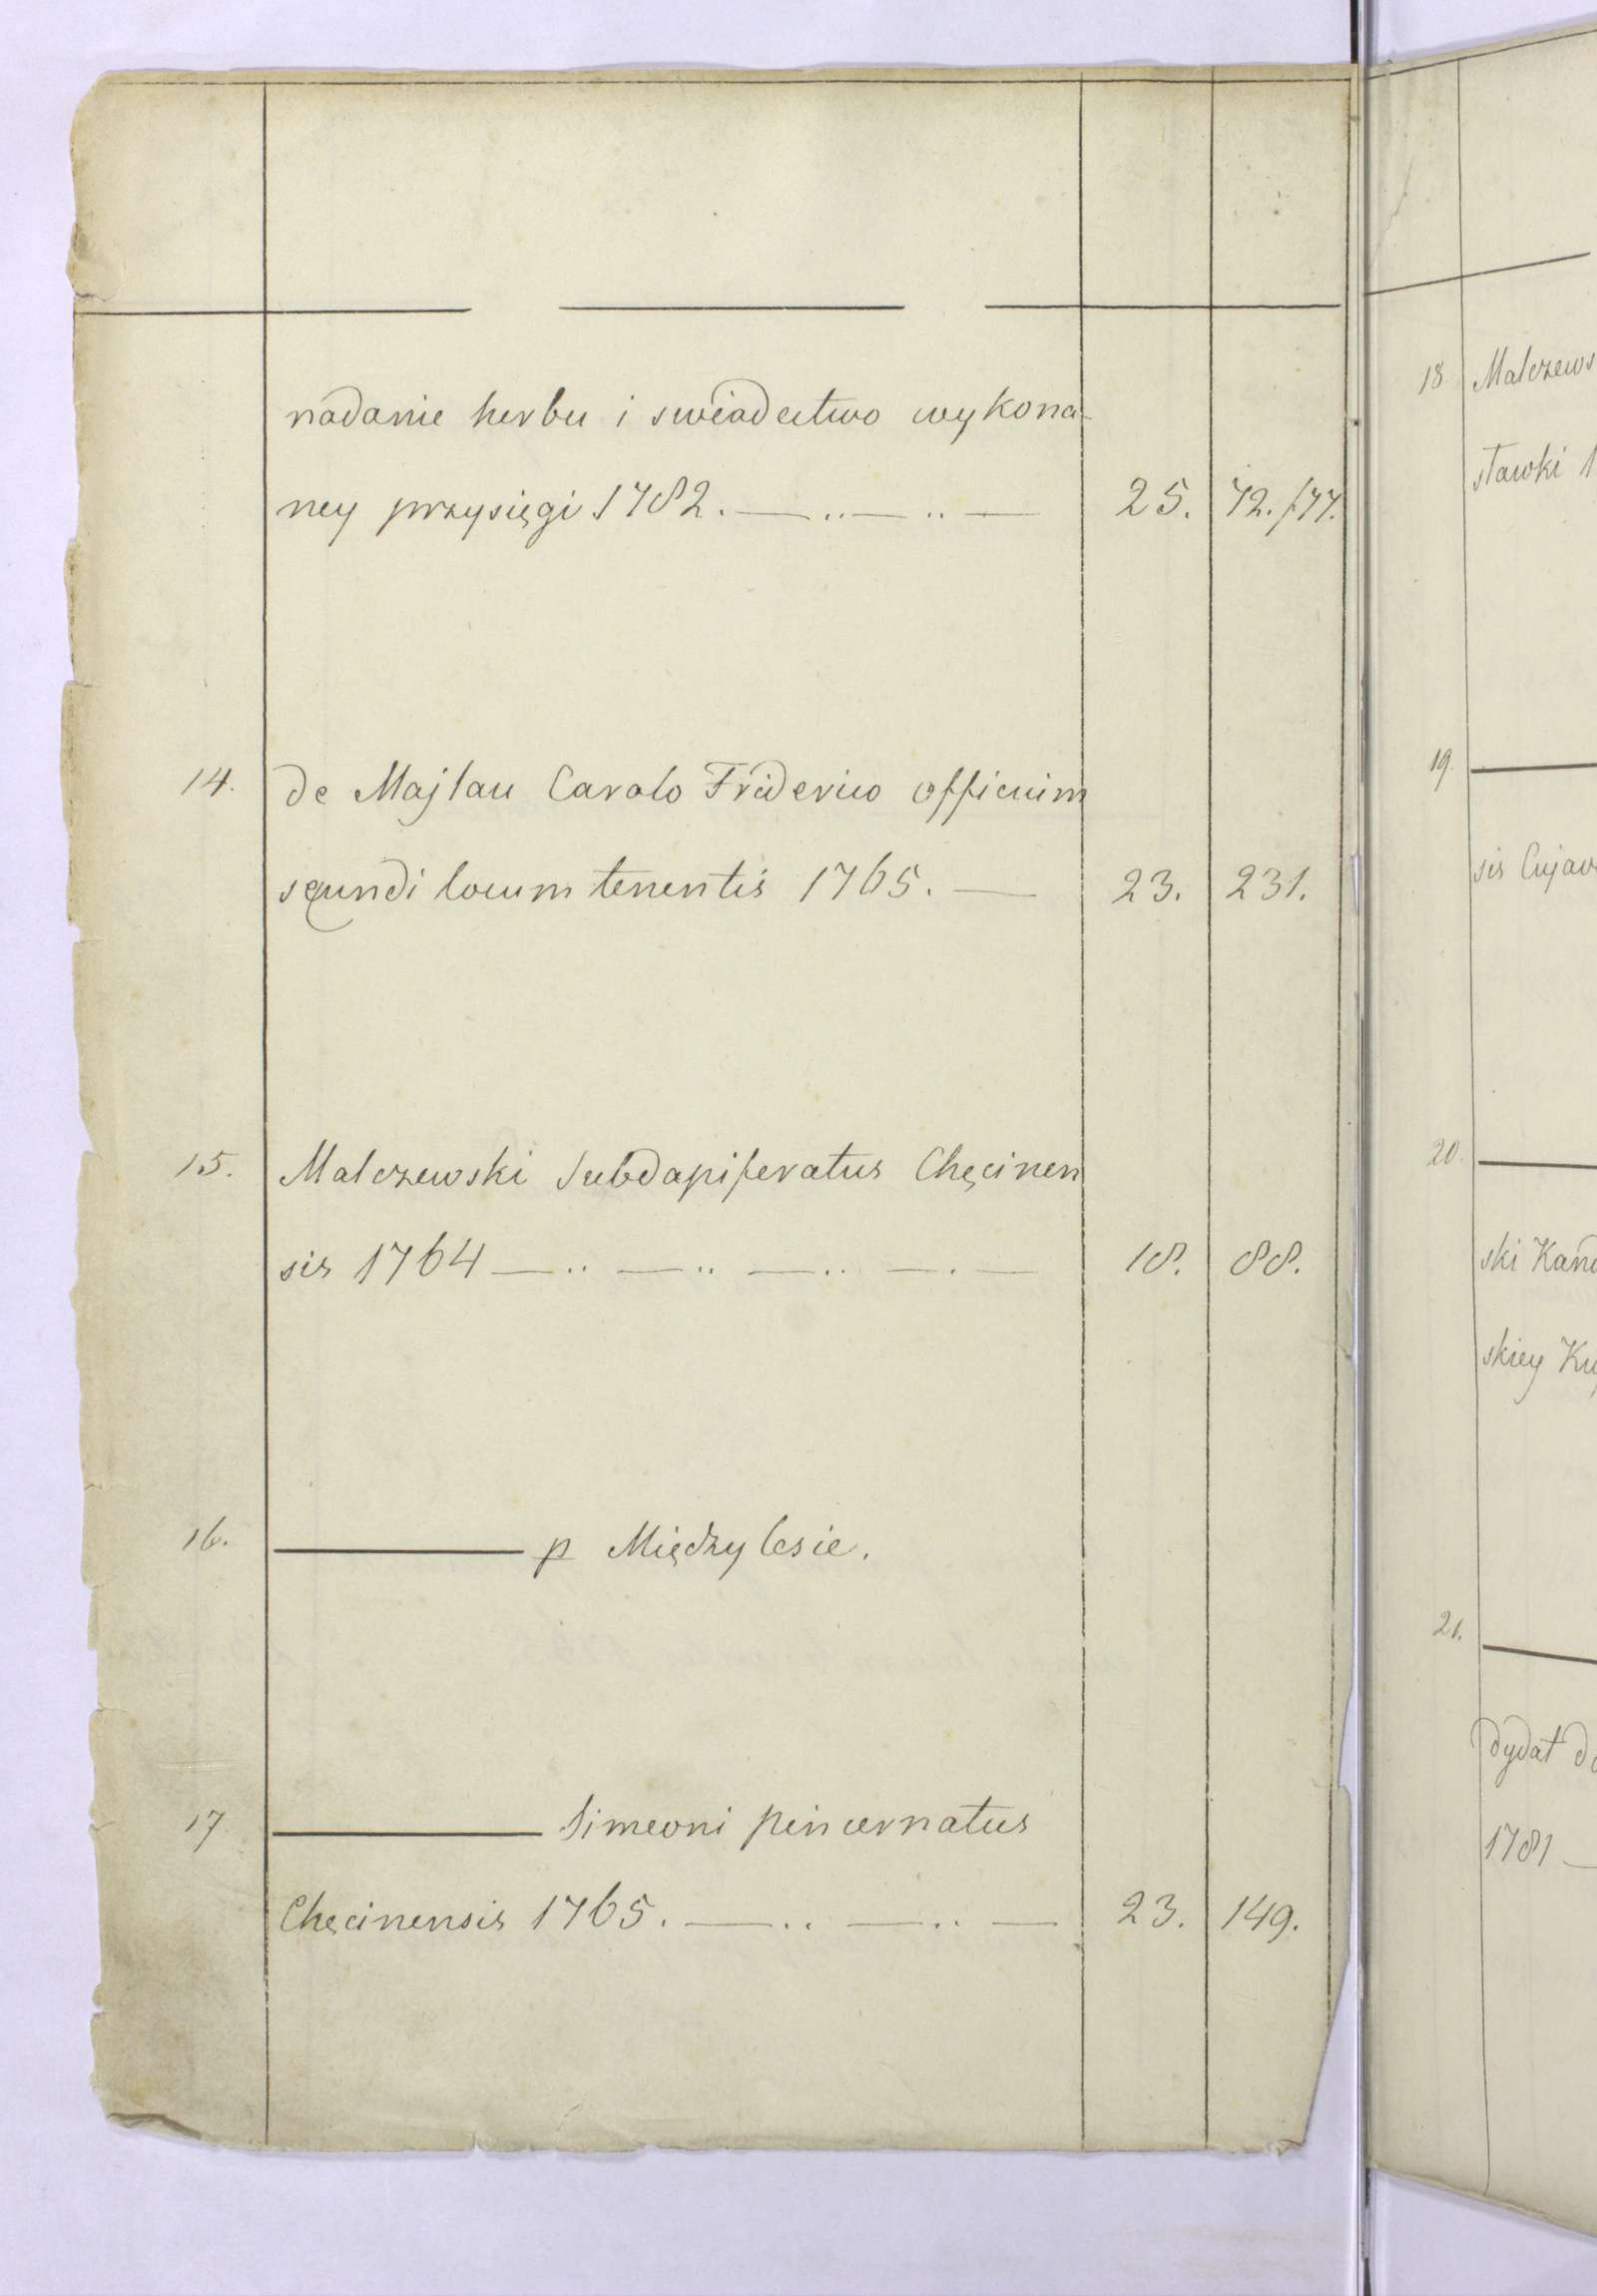 nadanie herbu i swiadectwo wykona-
ney przysięgi 1782. 25. 72./77.
14. de Majlau Carolo Friderico officium
secundi locum tenentis 1765. 23. 231.
15. Malczewski Subdapiferatus Chęcinen
sis 1764 18. 88.
16. p Międzylesie.
17 Simeoni pincernatus
Chęcinensis 1765. 23. 149.
18 Malczews
sławki 1
19.
sis Cujav
20.
ski Kand
skiey Kuj
21.
dydat do
1781